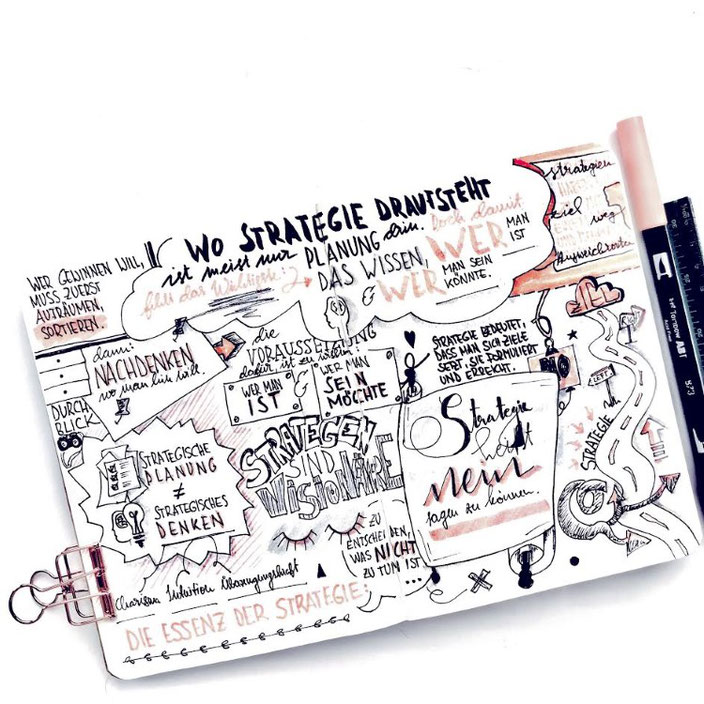 WO STRATEGIE DRAUFSTEHT
ist meist nur PLANUNG drin. Doch damit
fällt das Wichtigste:
DAS WISSEN,
WER MAN IST
& WER MAN SEIN KÖNNTE.
WER GEWINNEN WILL,
MUSS ZUERST
AUFRÄUMEN,
SORTIEREN.
dann:
NACHDENKEN
wo man hin will.
DURCH
BLICK
die
VORAUSSETZUNG
dafür, ist zu wissen:
WER MAN
IST
WER MAN
SEIN
MÖCHTE
STRATEGISCHE
PLANUNG
≠
STRATEGISCHES
DENKEN
STRATEGEN
SIND
VISIONÄRE
Charisma Intuition Überzeugungskraft
DIE ESSENZ DER STRATEGIE:
ZU
ENTSCHEIDEN,
WAS NICHT
ZU TUN IST...
STRATEGIE BEDEUTET,
DASS MAN SICH ZIELE
SETZT, SIE FORMULIERT
UND ERREICHT.
Strategie
heißt
Nein
sagen zu können.
strategien
ziel weg
Ausweichrouten
STRATEGIE
Tombow ABT
873